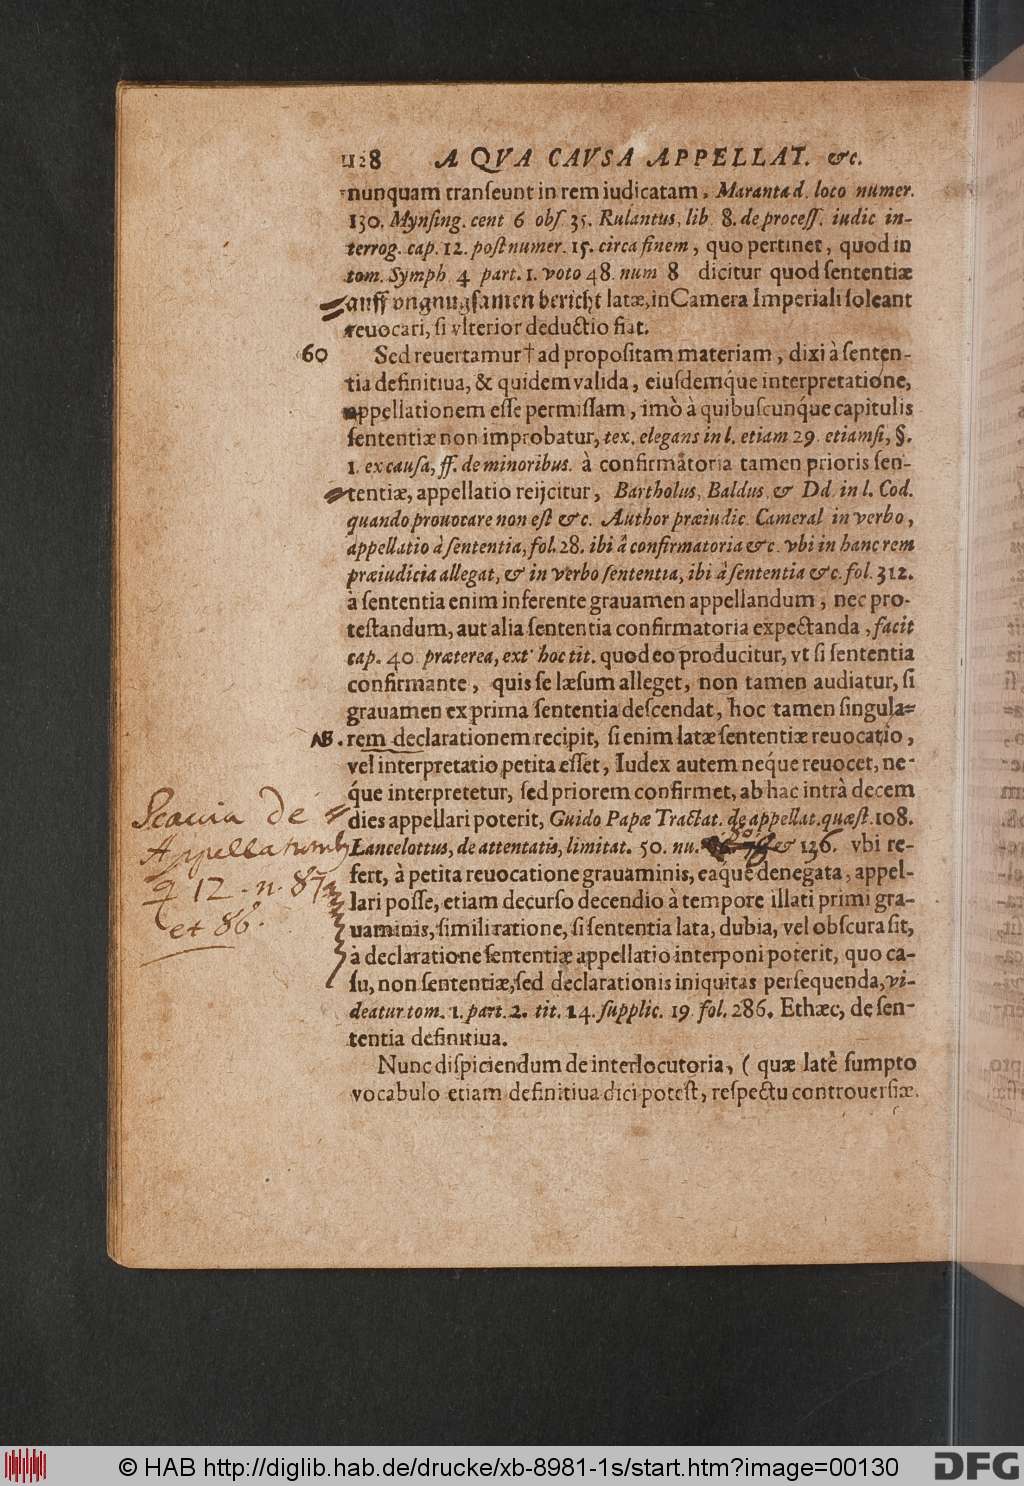 128 A QVA CAVSA APPELLAT. &c.
nunquam tranſeunt in rem iudicatam, Maranta d. loco numer.
130. Mynſing. cent 6 obſ. 35. Rulantus, lib. 8. de proceſſ. iudic in-
terrog. cap. 12. poſt numer. 15. circa finem, quo pertinet, quod in
tom. Symph. 4 part. 1. voto 48. num 8 dicitur quod ſententiæ
auff vngnugſamen bericht latæ, in Camera Imperiali ſoleant
reuocari, ſi vlterior deductio fiat.
60 Sed reuertamur † ad propoſitam materiam, dixi à ſenten-
tia definitiua, & quidem valida, eiuſdemq́ue interpretatione,
appellationem eſſe permiſſam, imò à quibuſcunq́ue capitulis
ſententiæ non improbatur, tex. elegans in l. etiam 29. etiamſi, §.
1. ex cauſa, ff. de minoribus. à confirmâtoria tamen prioris ſen-
tentiæ, appellatio reijcitur, Bartholus, Baldus, & Dd. in l. Cod.
quando prouocare non eſt &c. Author præiudic. Cameral in verbo,
appellatio à ſententia, fol. 28. ibi â confirmatoria &c. vbi in hanc rem
præiudicia allegat, & in verbo ſententia, ibi â ſententia &c. fol. 312.
à ſententia enim inferente grauamen appellandum, nec pro-
teſtandum, aut alia ſententia confirmatoria expectanda, facit
cap. 40. præterea, ext' hoc tit. quod eo producitur, vt ſi ſententia
confirmante, quis ſe læſum alleget, non tamen audiatur, ſi
grauamen ex prima ſententia deſcendat, hoc tamen ſingula-
NB. rem declarationem recipit, ſi enim latæ ſententiæ reuocatio,
vel interpretatio petita eſſet, Iudex autem neq́ue reuocet, ne-
q́ue interpretetur, ſed priorem confirmet, ab hac intrà decem
dies appellari poterit, Guido Papæ Tractat. de appellat. quæſt. 108.
Lancelottus, de attentatis, limitat. 50. nu. & 136. vbi re-
fert, à petita reuocatione grauaminis, eaq́ue denegata, appel-
lari poſſe, etiam decurſo decendio à tempore illati primi gra-
uaminis, ſimili ratione, ſi ſententia lata, dubia, vel obſcura ſit,
à declaratione ſententiæ appellatio interponi poterit, quo ca-
ſu, non ſententiæ, ſed declarationis iniquitas perſequenda, vi-
deatur tom. 1. part. 2. tit. 14. ſupplic. 19 fol. 286. Et hæc, de ſen-
tentia definitiua.
Nunc diſpiciendum de interlocutoria, ( quæ latê ſumpto
vocabulo etiam definitiua dici poteſt, reſpectu controuerſiæ.
Scacia de
Appellationib
q 12. n. 87
et 86.
© HAB http://diglib.hab.de/drucke/xb-8981-1s/start.htm?image=00130
DFG